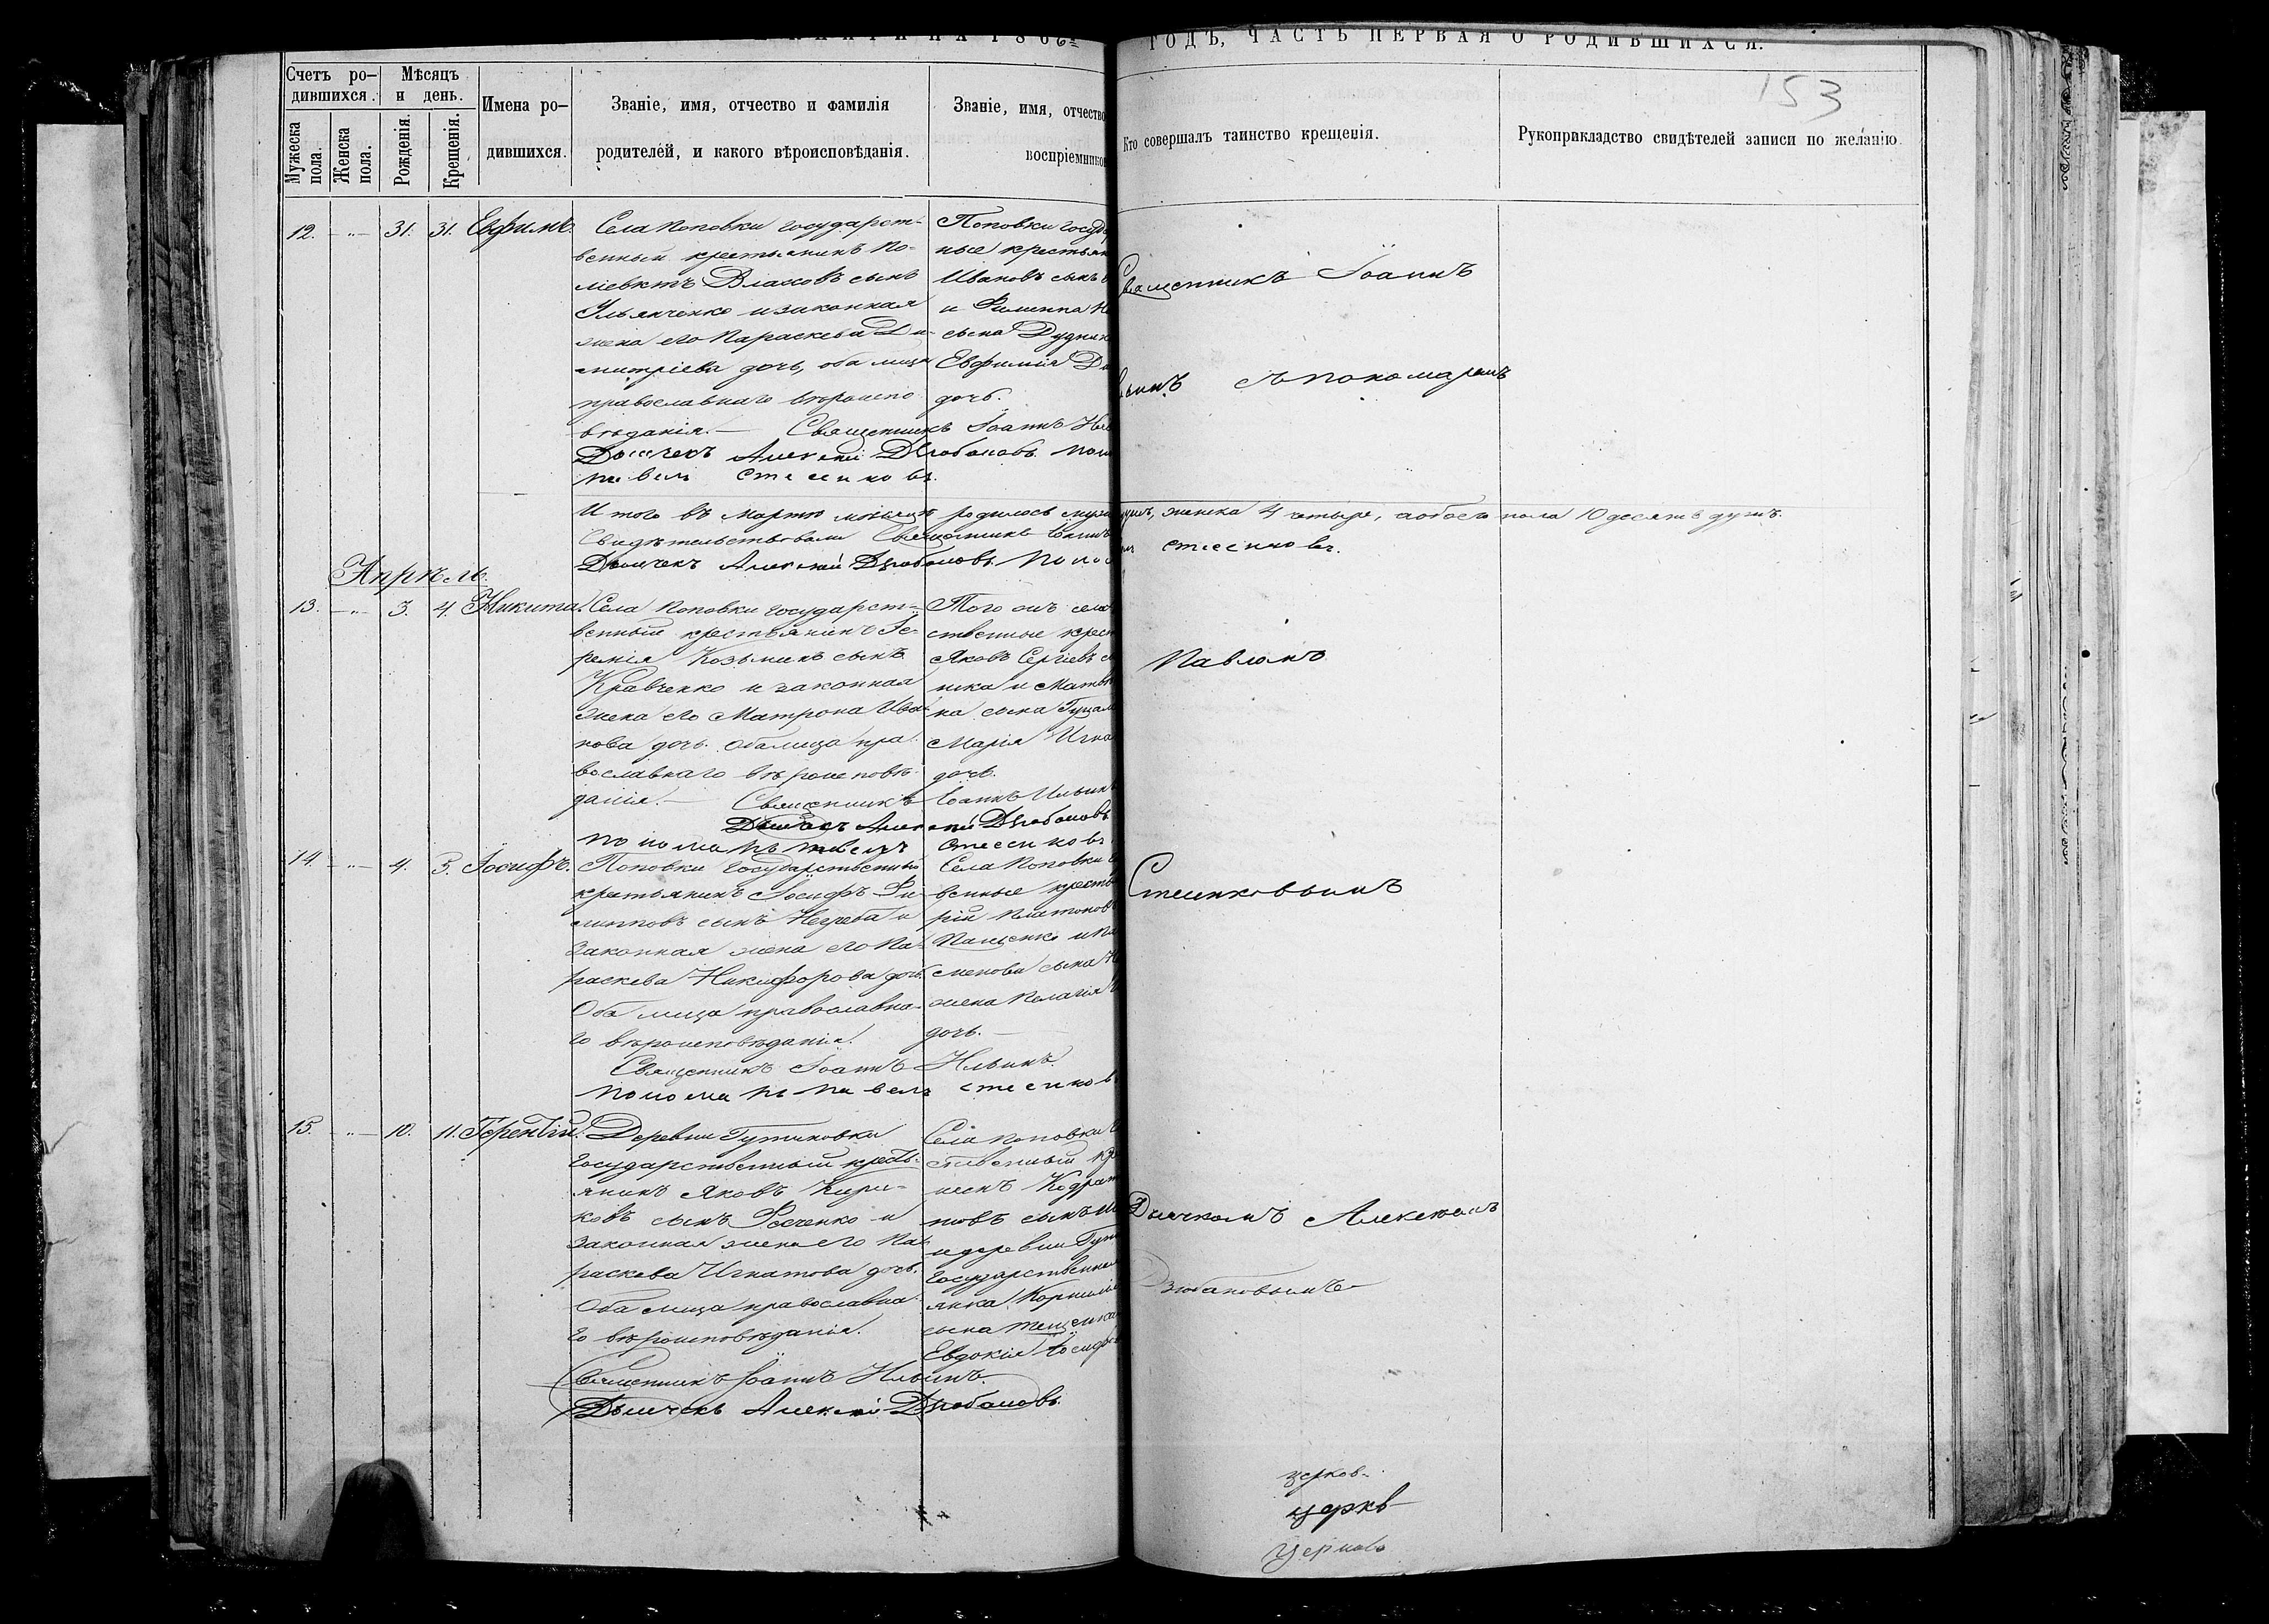 ГОДЪ, ЧАСТЬ ПЕРВАЯ О РОДИВШИХСЯ.
153
Счетъ ро-
дившихся.
Мужеска пола.
Женска пола.
Мѣсяцъ
и день.
Рожденія.
Крещенія.
Имена ро-
дившихся.
Званіе, имя, отчество и фамилія
родителей, и какого вѣроисповѣданія.
Званіе, имя, отчество
воспріемнико
Кто совершалъ таинство крещенія.
Рукоприкладство свидѣтелей записи по желанію
12. 31. 31. Евфимъ.
Села Поповки государст-
венный крестьянинъ По-
ліевктъ Власовъ сынъ
Ульянченко и законная
жена его Параскева Ди-
митріева дочь, оба лица
православнаго вѣроиспо
вѣданія. — Священникъ Іоаннъ
Дьячекъ Алексѣй Дзюбановъ
Павелъ
Поповки госуд
ные крестьян
Ивановъ сынъ
и Филиппа
сына Дудни
Евфимія
дочь.
Священникъ Іоаннъ
съ пономаремъ
Итого въ мартѣ мѣсяцѣ родилось муж
женска 4 четыре, а обоего пола 10 десять душъ.
Свидѣтельствовали Священникъ
Дьячекъ Алексѣй Дзюбановъ
Апрѣль.
13. 3. 4. Никита.
Села Поповки государст-
венный крестьянинъ Іе-
ремія Козьминъ сынъ
Кравченко и законная
жена его Матрона Ива-
нова дочь. Оба лица пра
вославнаго вѣроисповѣ-
данія. — Священникъ Іоаннъ Ильинъ
Дьячекъ Алексѣй Дзюбановъ
Пономарь Павелъ
Того жъ села
ственные крест
Яковъ Сергіевъ
ника и Матв
на сына
Марія Игна
дочь.
Павломъ
14. 4. 5. Іосифъ.
Поповки государственный
крестьянинъ Іосифъ Фи-
липповъ сынъ Негреба и
законная жена его Па-
раскева Никифорова дочь.
Оба лица православна-
го вѣроисповѣданія.
Священникъ Іоаннъ Ильинъ.
Пономарь Павелъ
Села Поповки
венные кресть
рій Платонов
Пащенко и
сменова сына
жена Пелагія
дочь. —
15. 10. 11. Терентій.
Деревни Гутировки
государственный кресть-
янинъ Яковъ Кири-
ковъ сынъ Фесченко и
законная жена его Па-
раскева Игнатова дочь.
Оба лица православна-
го вѣроисповѣданія.
Священникъ Іоаннъ Ильинъ.
Дьячекъ Алексѣй Дзюбановъ.
Села Поповки
ственный кр
нинъ Кодрат
товъ сынъ
и деревни Гут
государственна
янка Корнилі
сына
Евдокія Іосифо
Дьячкомъ Алексѣемъ
Дзюбановымъ
церков-
церкв
церковь